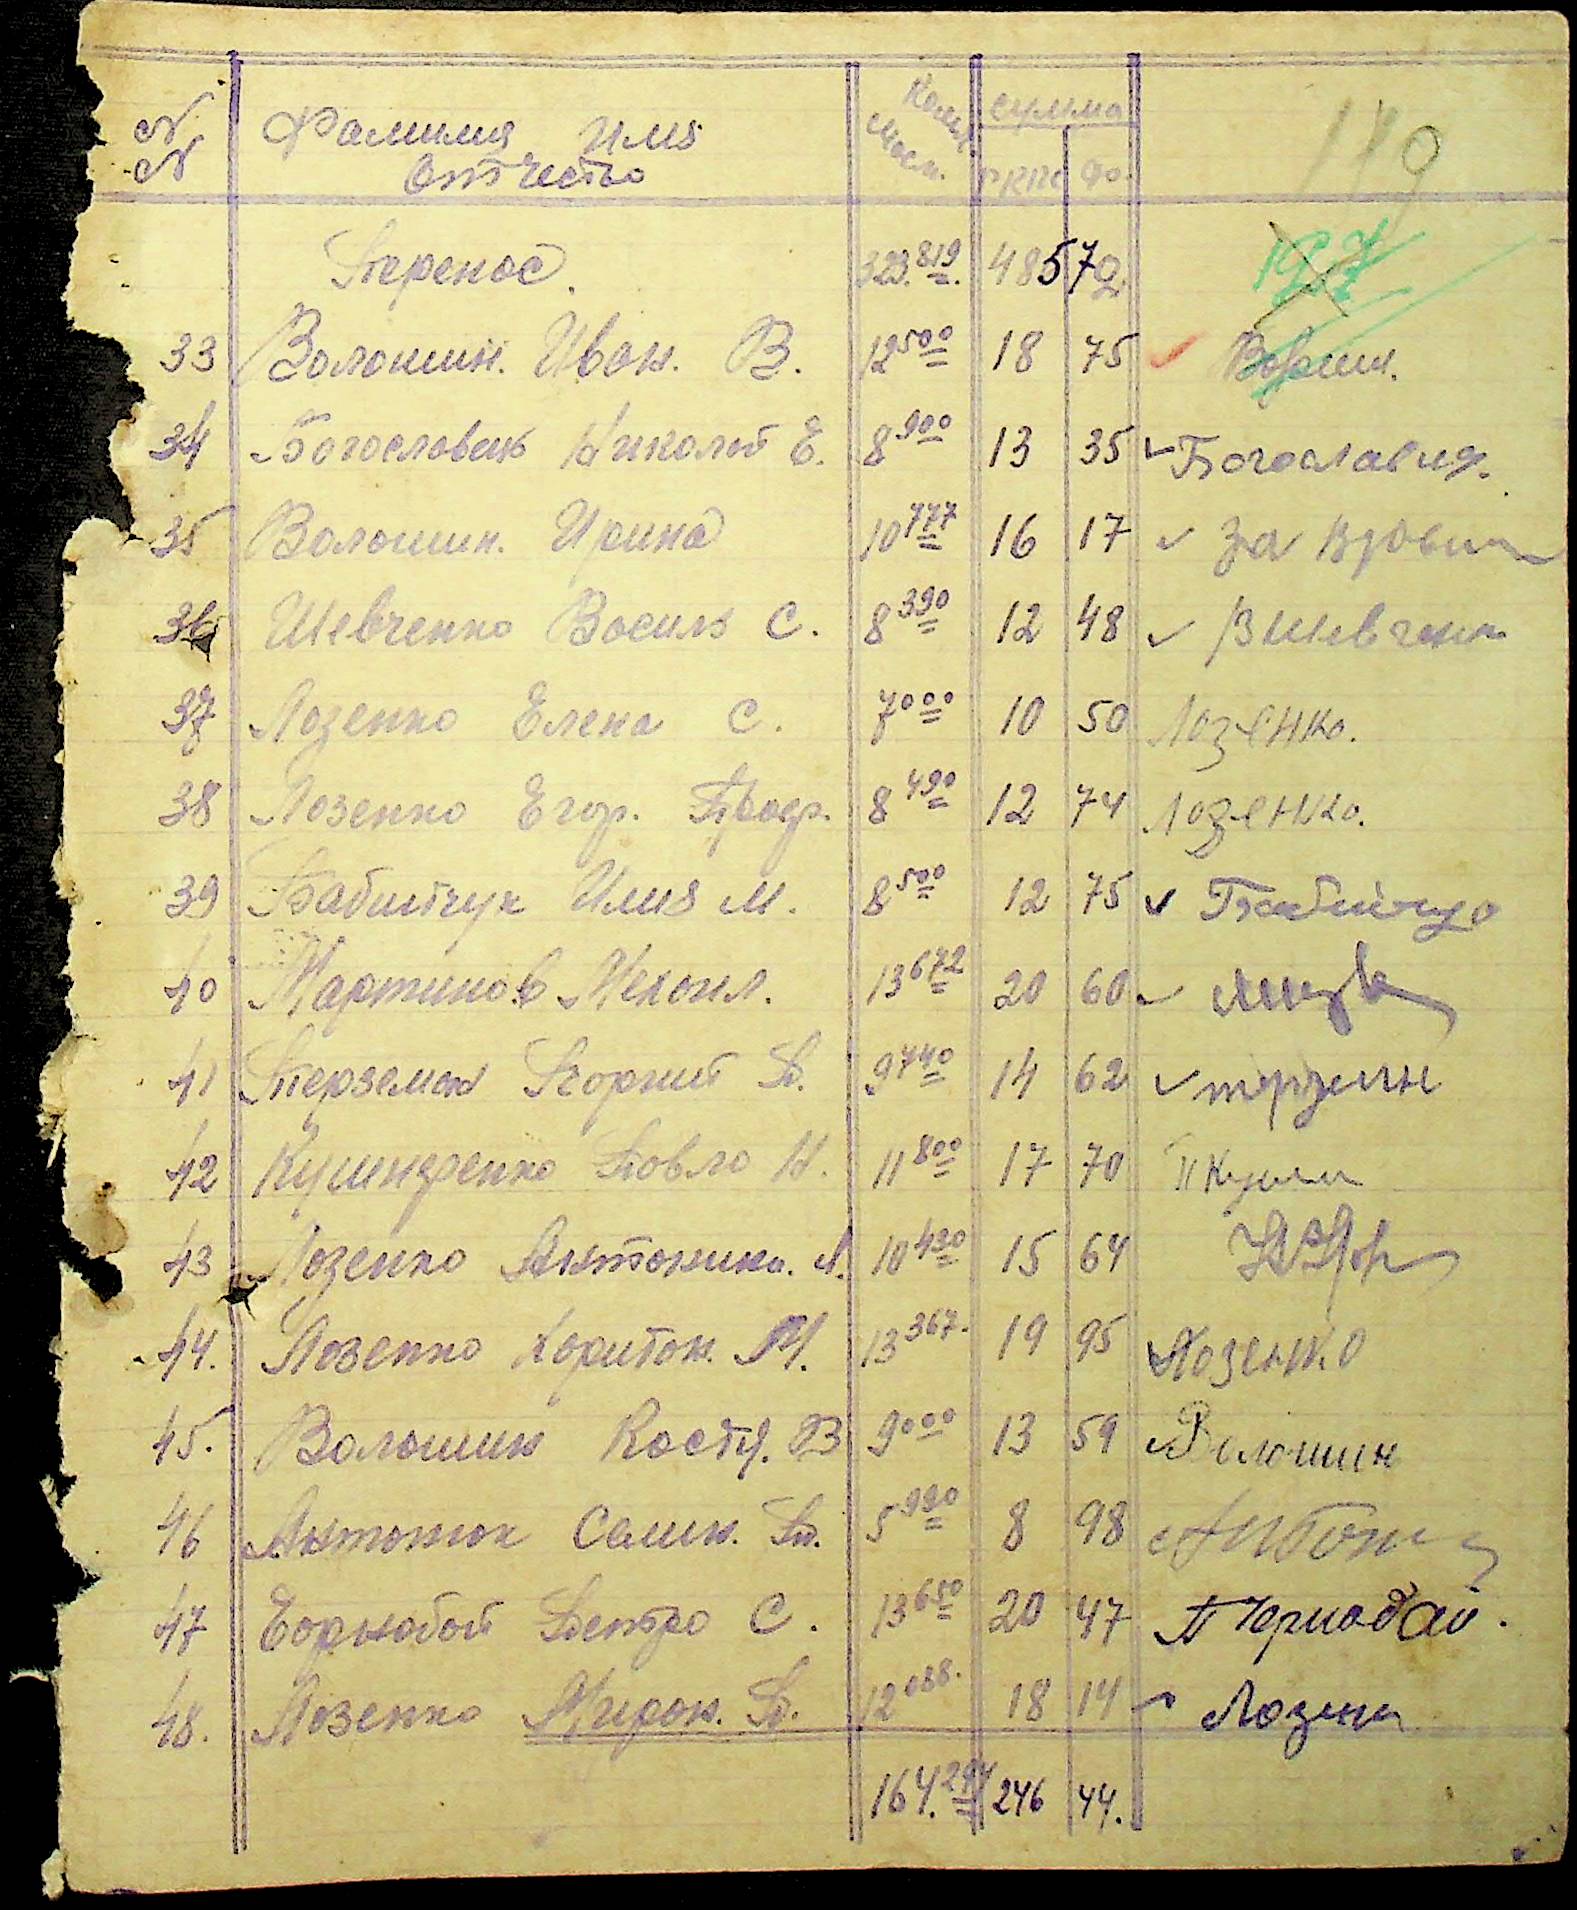 № Фамилия Имя Колич. Сумма 179
№ Отчество масл. РКПС Фо.
Перенос. 323.819. 485 72 197
33 Волошин. Иван. В. 12500 18 75
34 Богословец Николай Е. 8900 13 35 Богославец.
35 Волошин. Ирина 10777 16 17 За
36 Шевченко Василь С. 8390 12 48 В Шевченк
37 Лозенко Елена С. 7000 10 50 Лозенко.
38 Лозенко Егор. 8490 12 74 Лозенко.
39 Илия М. 8500 12 75
40 Мартинов Мехаил. 13672 20 60
41 Терземан Георгий П. 9740 14 62
42 Павло Н. 11800 17 70 П Кушн
43 Лозенко Антонина. Л. 10430 15 64
44. Лозенко Харитон. М. 13367. 19 95 Лозенко
45. Волошин Костя. В 9000 13 59 Волошин
46 Антонюк Семен. П. 5990 8 98
47 Чорнобой Петро С. 13650 20 47 П Чернобай.
48. Лозенко Мирон. П. 12088. 18 14 Лозенк
164.294 246 44.